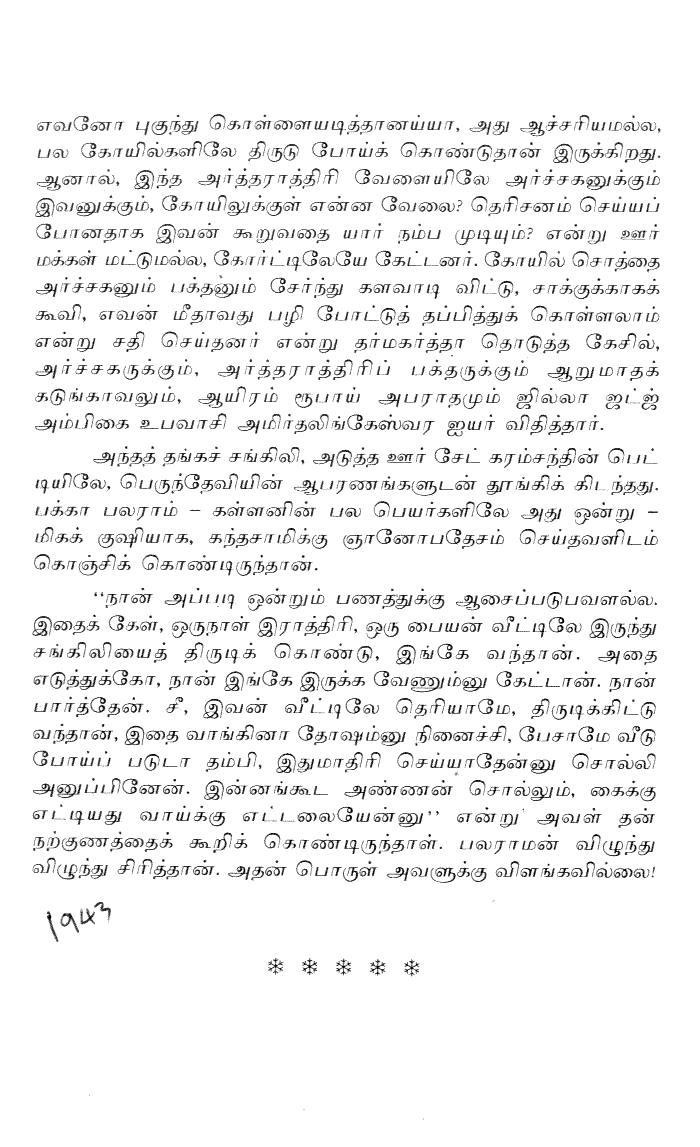 எவனோ புகுந்து கொள்ளையடித்தானய்யா, அது ஆச்சரியமல்ல,
பல கோயில்களிலே திருடு போய்க் கொண்டுதான் இருக்கிறது.
ஆனால், இந்த அர்த்தராத்திரி வேளையிலே அர்ச்சகனுக்கும்
இவனுக்கும், கோயிலுக்குள் என்ன வேலை? தெரிசனம் செய்யப்
போனதாக இவன் கூறுவதை யார் நம்ப முடியும்? என்று ஊர்
மக்கள் மட்டுமல்ல, கோர்ட்டிலேயே கேட்டனர். கோயில் சொத்தை
அர்ச்சகனும் பக்தனும் சேர்ந்து களவாடி விட்டு, சாக்குக்காகக்
கூவி, எவன் மீதாவது பழி போட்டுத் தப்பித்துக் கொள்ளலாம்
என்று சதி செய்தனர் என்று தர்மகர்த்தா தொடுத்த கேசில்,
அர்ச்சகருக்கும், அர்த்தராத்திரிப் பக்தருக்கும் ஆறுமாதக்
கடுங்காவலும், ஆயிரம் ரூபாய் அபராதமும் ஜில்லா ஜட்ஜ்
அம்பிகை உபவாசி அமிர்தலிங்கேஸ்வர ஐயர் விதித்தார்.
அந்தத் தங்கச் சங்கிலி, அடுத்த ஊர் சேட் கரம்சந்தின் பெட்
டியிலே, பெருந்தேவியின் ஆபரணங்களுடன் தூங்கிக் கிடந்தது.
பக்கா பலராம் – கள்ளனின் பல பெயர்களிலே அது ஒன்று –
மிகக் குஷியாக, கந்தசாமிக்கு ஞானோபதேசம் செய்தவளிடம்
கொஞ்சிக் கொண்டிருந்தான்.
‘‘நான் அப்படி ஒன்றும் பணத்துக்கு ஆசைப்படுபவளல்ல.
இதைக் கேள், ஒருநாள் இராத்திரி, ஒரு பையன் வீட்டிலே இருந்து
சங்கிலியைத் திருடிக் கொண்டு, இங்கே வந்தான். அதை
எடுத்துக்கோ, நான் இங்கே இருக்க வேணும்னு கேட்டான். நான்
பார்த்தேன். சீ, இவன் வீட்டிலே தெரியாமே, திருடிக்கிட்டு
வந்தான், இதை வாங்கினா தோஷம்னு நினைச்சி, பேசாமே வீடு
போய்ப் படுடா தம்பி, இதுமாதிரி செய்யாதேன்னு சொல்லி
அனுப்பினேன். இன்னங்கூட அண்ணன் சொல்லும், கைக்கு
எட்டியது வாய்க்கு எட்டலையேன்னு’’ என்று அவள் தன்
நற்குணத்தைக் கூறிக் கொண்டிருந்தாள். பலராமன் விழுந்து
விழுந்து சிரித்தான். அதன் பொருள் அவளுக்கு விளங்கவில்லை!
1943